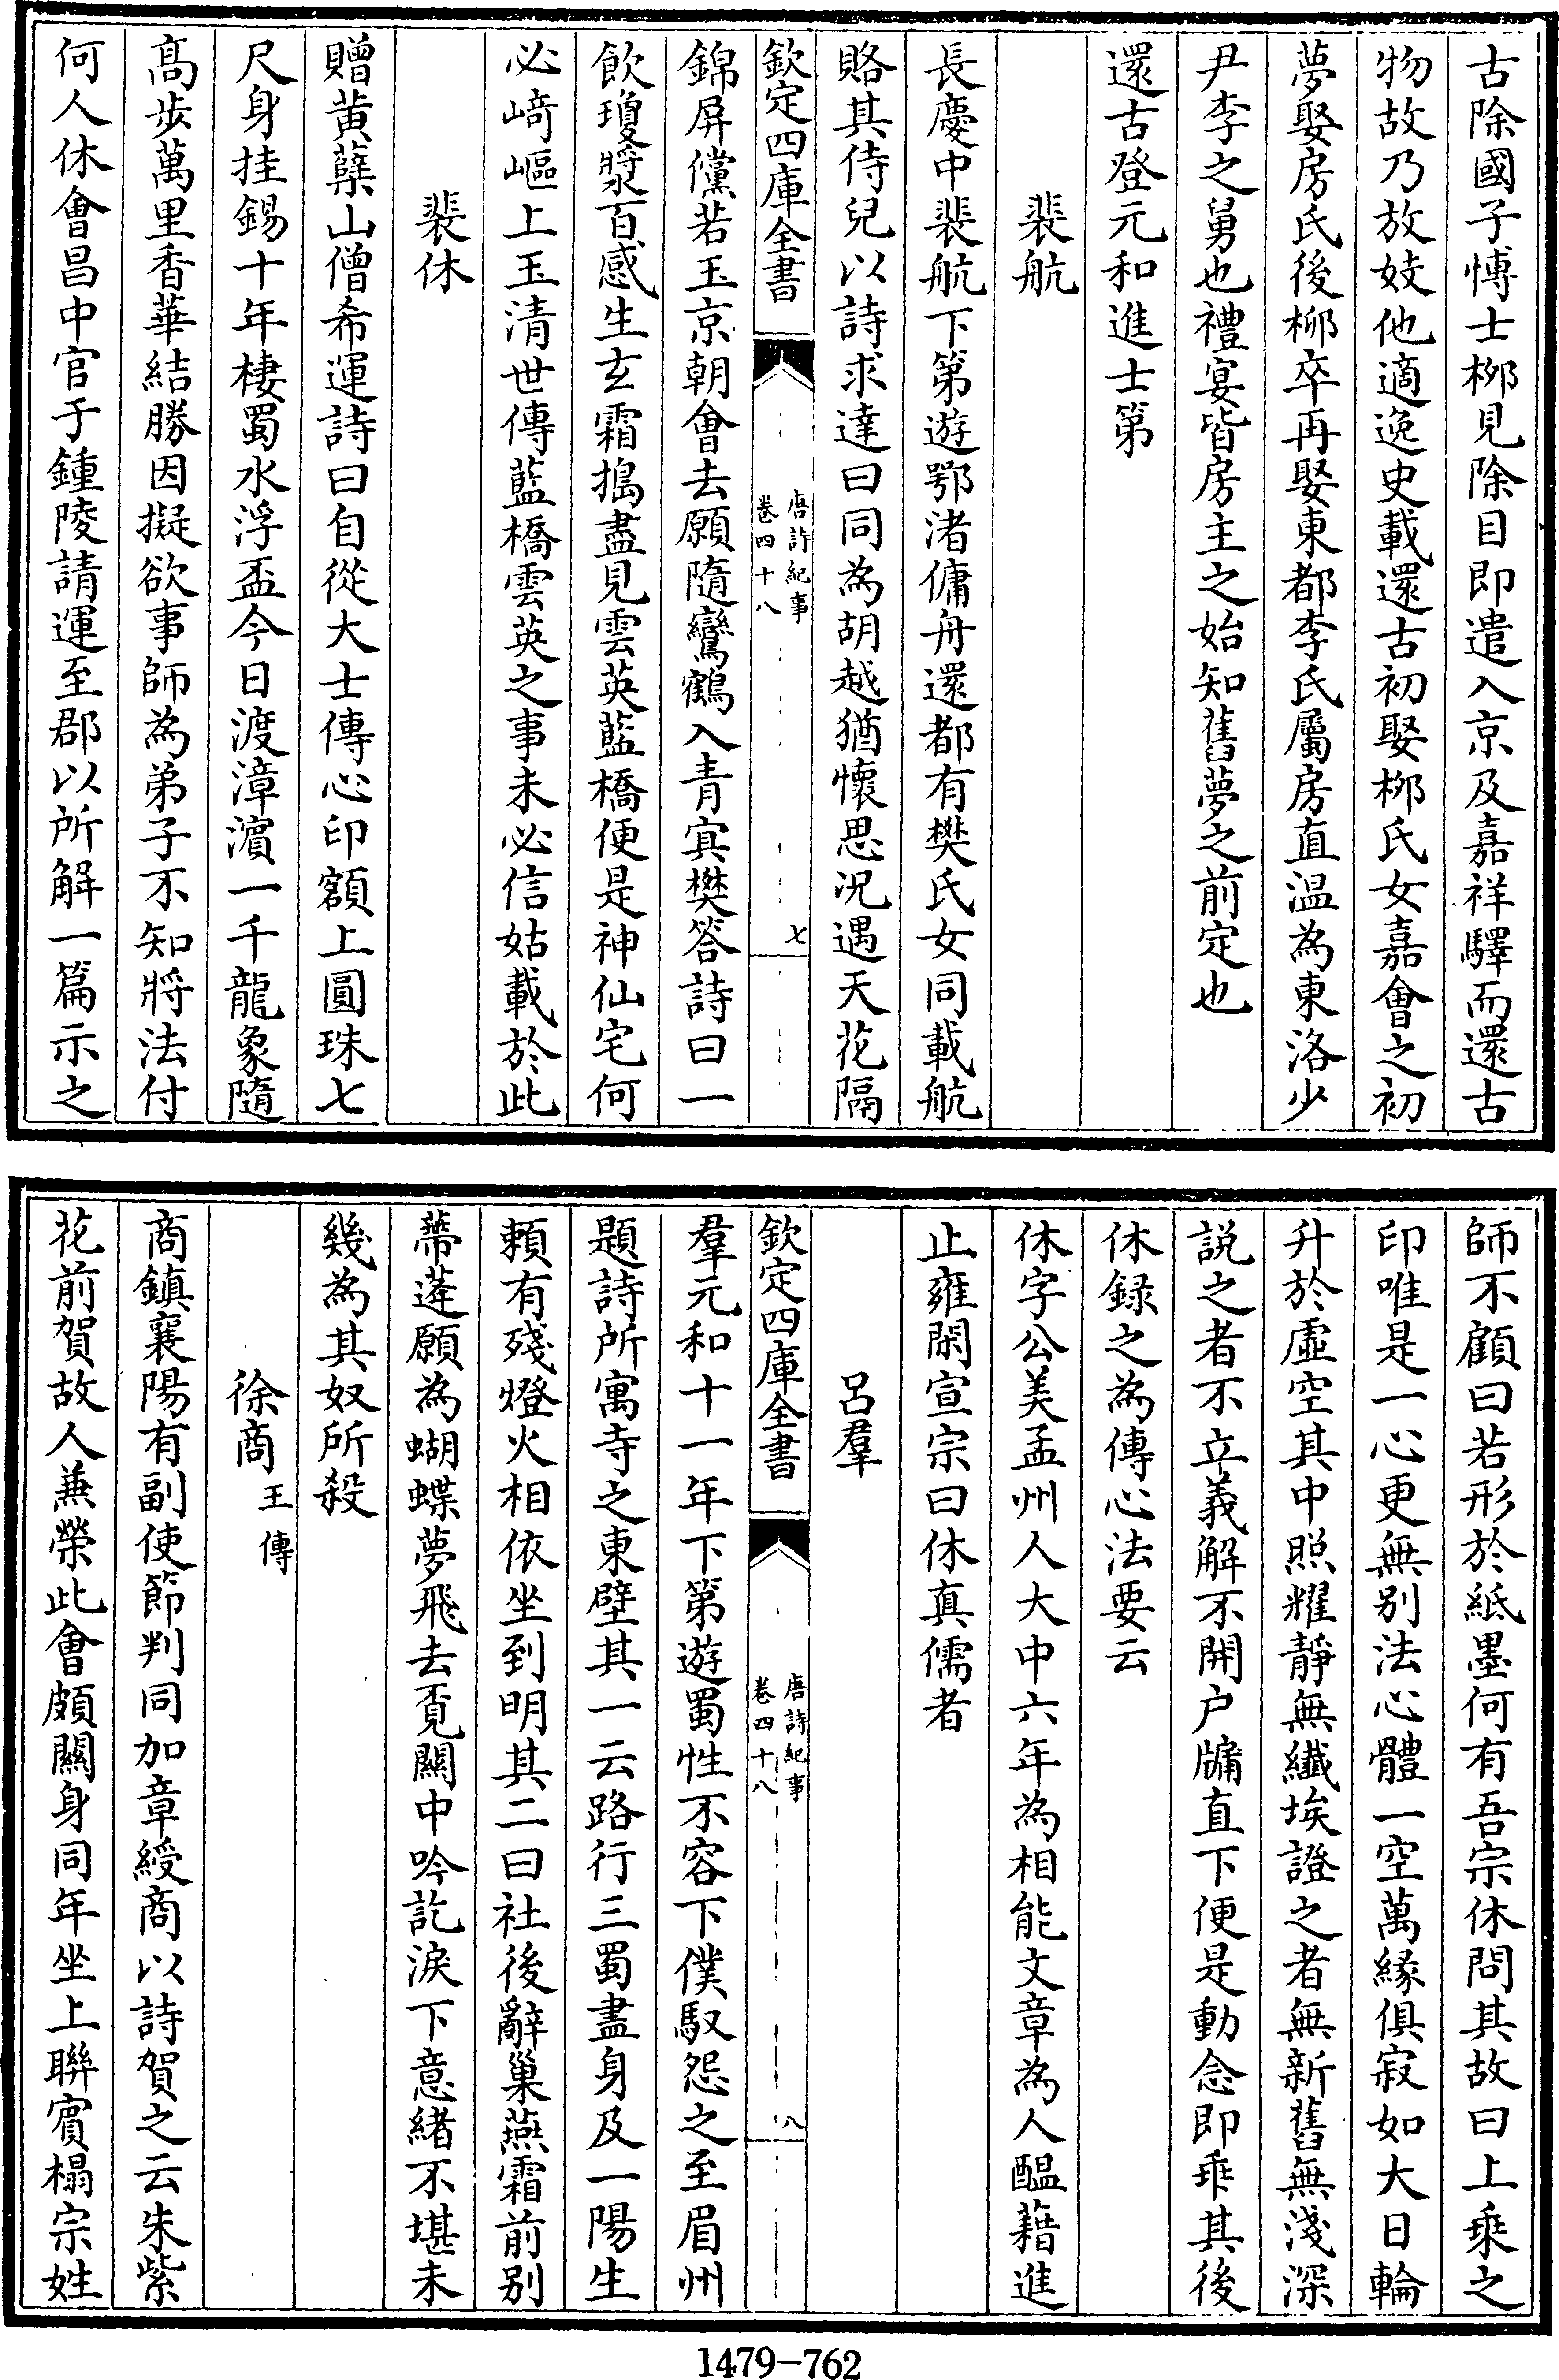 古除國子愽士栁見除目即遣入京及嘉祥驛而還古
物故乃放妓他適逸史載還古初娶栁氏女嘉會之初
夢娶房氏後栁卒再娶東都李氏屬房直温為東洛少
尹李之舅也禮宴皆房主之始知舊夢之前定也
還古登元和進士第
裴航
長慶中裴航下第遊鄂渚傭舟還都有樊氏女同載航
賂其侍兒以詩求達曰同為胡越猶懷思况遇天花隔
欽定四庫全書
唐詩紀事
卷四十八
七
錦屏儻若玉京朝會去願隨鸞鶴入青㝠樊答詩曰一
飲瓊漿百感生玄霜搗盡見雲英藍橋便是神仙宅何
必﨑嶇上玉清世傳藍橋雲英之事未必信姑載於此
裴休
贈黄蘗山僧希運詩曰自從大士傳心印額上圓珠七
尺身挂錫十年棲蜀水浮盃今日渡漳濵一千龍象隨
髙步萬里香華結勝因擬欲事師為弟子不知將法付
何人休會昌中官于鍾陵請運至郡以所解一篇示之
師不顧曰若形於紙墨何有吾宗休問其故曰上乘之
印唯是一心更無别法心體一空萬緣俱寂如大日輪
升於虛空其中照耀靜無纎埃證之者無新舊無淺深
説之者不立義解不開户牖直下便是動念即乖其後
休録之為傳心法要云
休字公美孟州人大中六年為相能文章為人醖藉進
止雍閑宣宗曰休真儒者
呂羣
欽定四庫全書
唐詩紀事
卷四十八
八
羣元和十一年下第遊蜀性不容下僕馭怨之至眉州
題詩所寓寺之東壁其一云路行三蜀盡身及一陽生
賴有殘燈火相依坐到明其二曰社後辭巢燕霜前别
蔕蓬願為蝴蝶夢飛去覓關中吟訖淚下意緒不堪未
幾為其奴所殺
徐商王傳
商鎮襄陽有副使節判同加章綬商以詩賀之云朱紫
花前賀故人兼榮此會頗關身同年坐上聯賓榻宗姓
1479－762